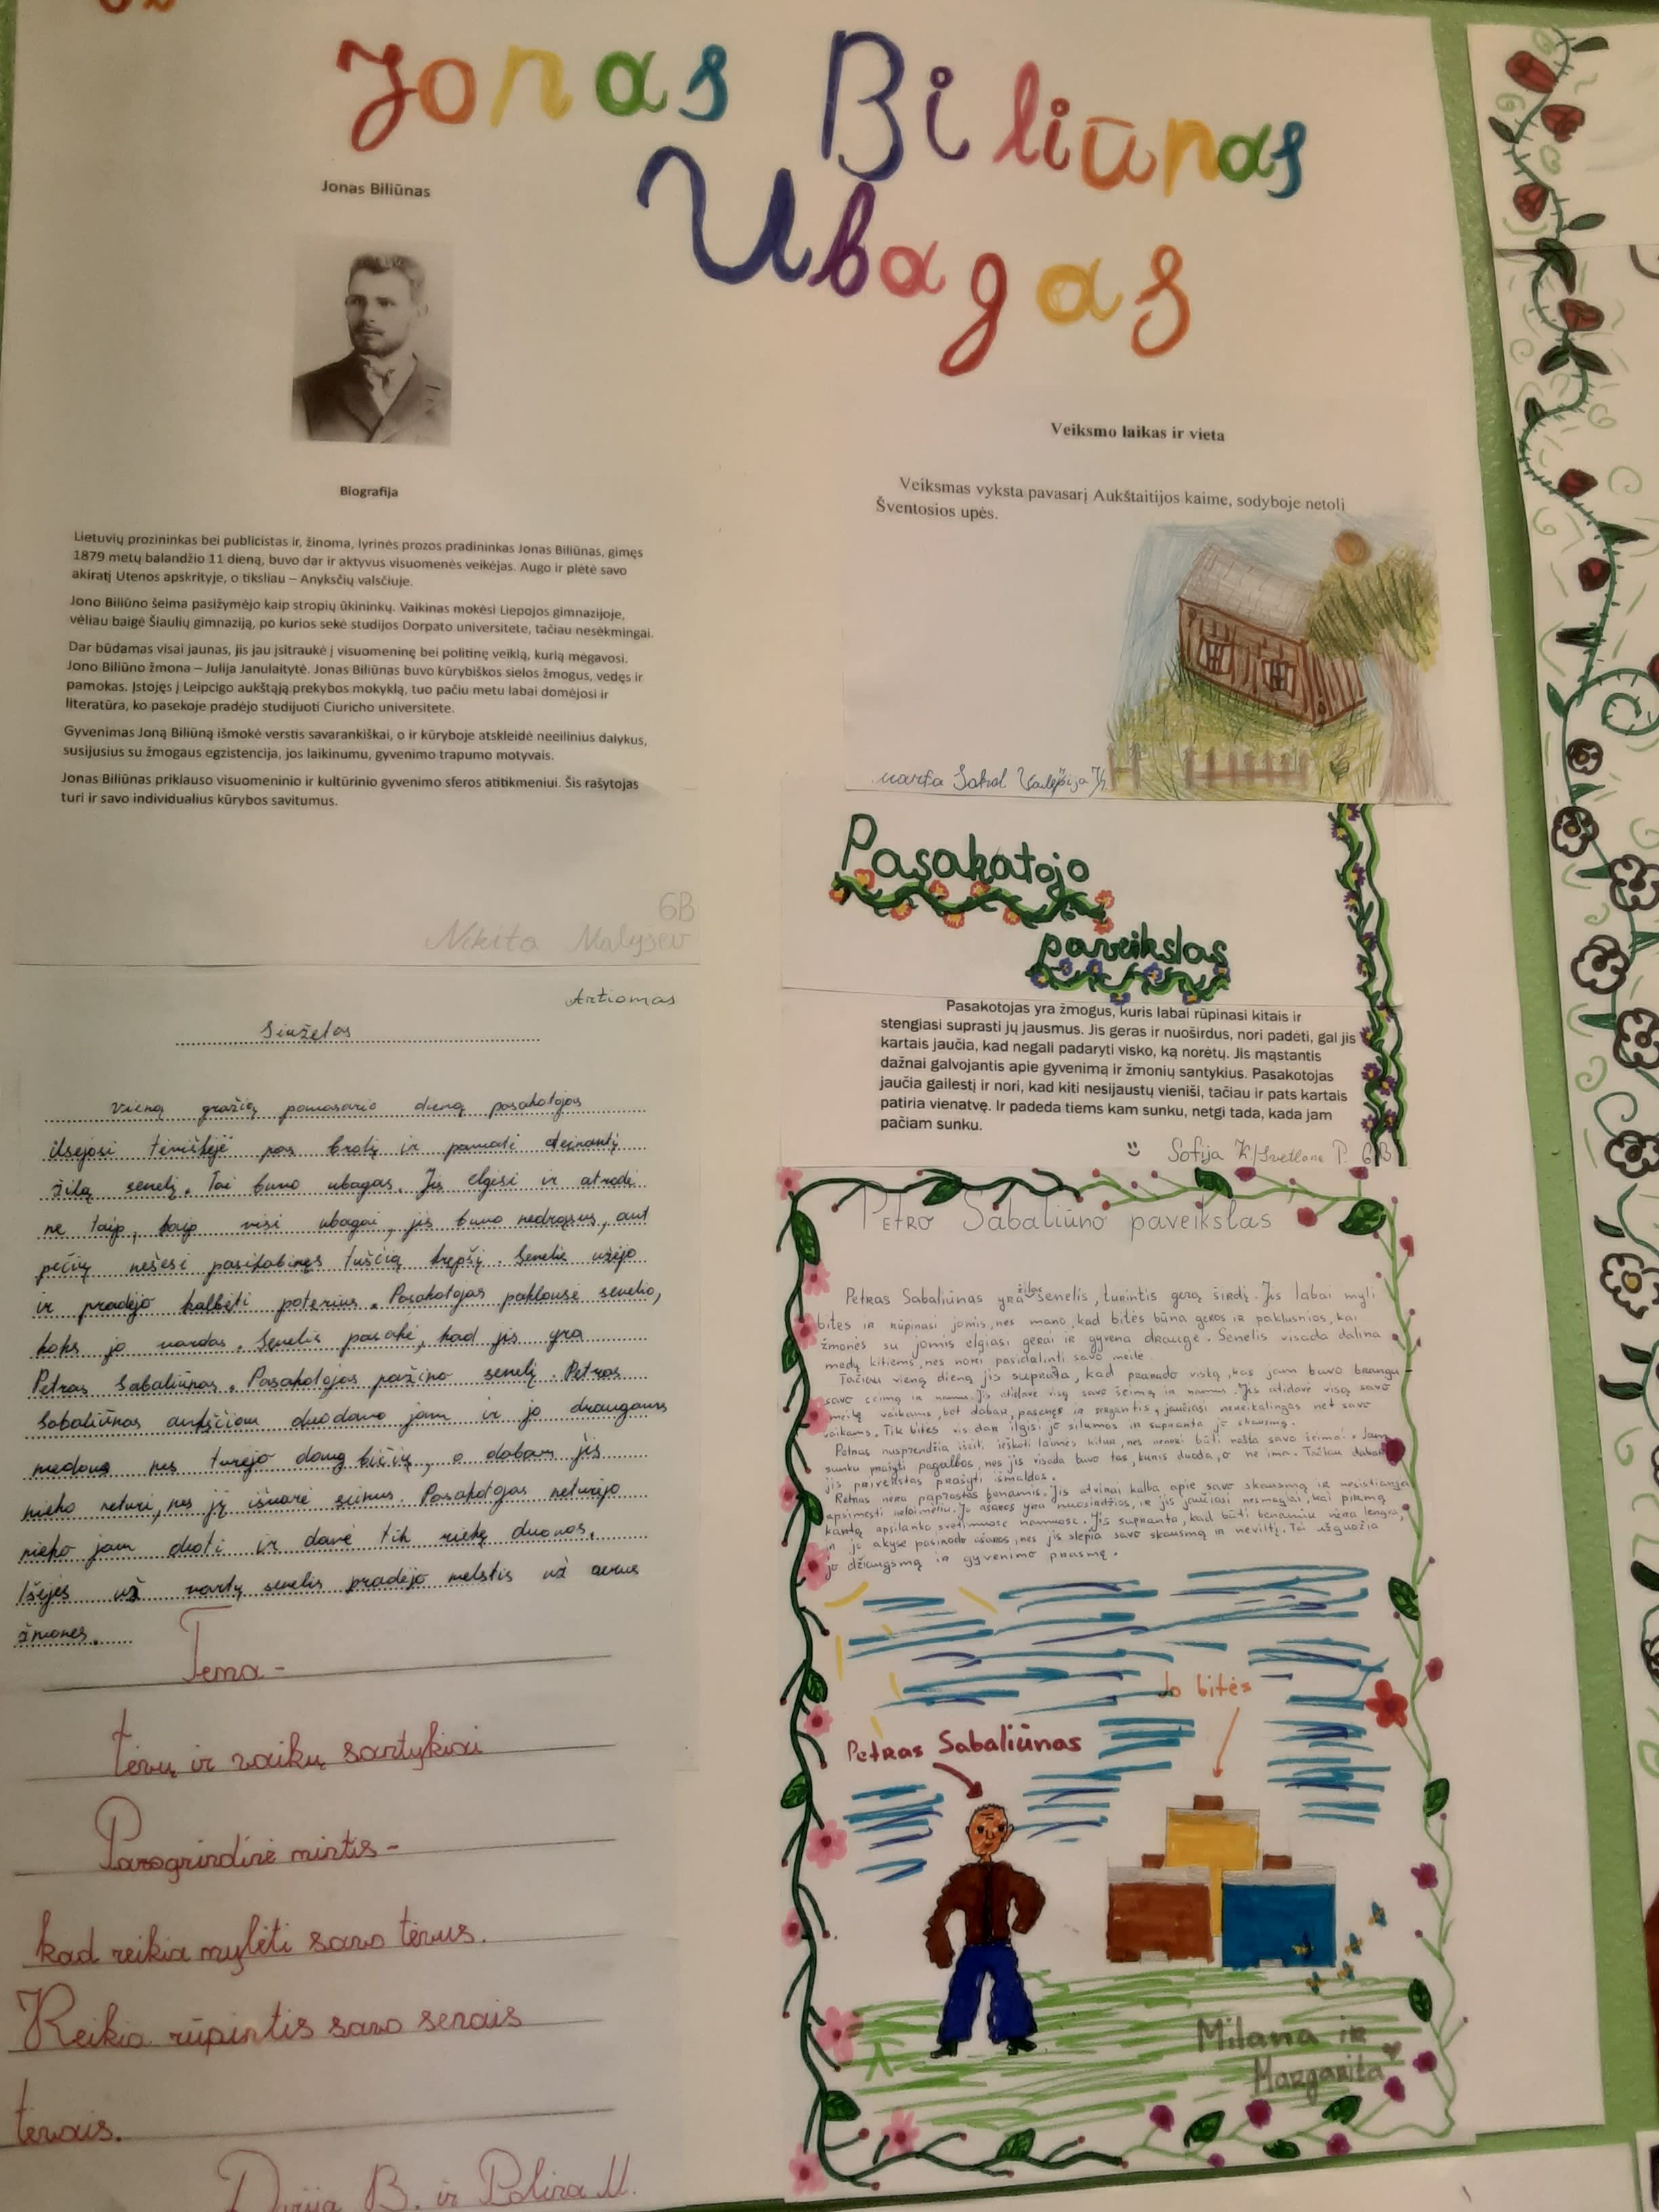 Jonas Biliūnas
Ubagas
Jonas Biliūnas
Biografija
Lietuvių prozininkas bei publicistas ir, žinoma, lyrinės prozos pradininkas Jonas Biliūnas, gimęs
1879 metų balandžio 11 dieną, buvo dar ir aktyvus visuomenės veikėjas. Augo ir plėtė savo
akiratį Utenos apskrityje, o tiksliau – Anykščių valsčiuje.
Jono Biliūno šeima pasižymėjo kaip stropių ūkininkų. Vaikinas mokėsi Liepojos gimnazijoje,
vėliau baigė Šiaulių gimnaziją, po kurios sekė studijos Dorpato universitete, tačiau nesėkmingai.
Dar būdamas visai jaunas, jis jau įsitraukė į visuomeninę bei politinę veiklą, kuria mėgavosi.
Jono Biliūno žmona – Julija Janulaitytė. Jonas Biliūnas buvo kūrybiškos sielos žmogus, vedęs ir
pamokas. Įstojęs į Leipcigo aukštąją prekybos mokyklą, tuo pačiu metu labai domėjosi ir
literatūra, ko pasekoje pradėjo studijuoti Ciuricho universitete.
Gyvenimas Joną Biliūną išmokė verstis savarankiškai, o ir kūryboje atskleidė neeilinius dalykus,
susijusius su žmogaus egzistencija, jos laikinumu, gyvenimo trapumo motyvais.
Jonas Biliūnas priklauso visuomeninio ir kultūrinio gyvenimo sferos atitikmeniui. Šis rašytojas
turi ir savo individualius kūrybos savitumus.
6B
Nikita Malyšev
Artiomas
Siužetas
Vieną gražią pavasario dieną pasakotojas
ilsėjosi tėviškėje pas brolį ir pamatė ateinantį
žilą senelį. Tai buvo ubagas. Jis elgėsi ir atrodė
ne taip, kaip visi ubagai, jis buvo nedrąsus, ant
pečių nešėsi pasikabinęs tuščią krepšį. Senelis užėjo
ir pradėjo kalbėti poterius. Pasakotojas paklausė senelio,
koks jo vardas. Senelis pasakė, kad jis yra
Petras Sabaliūnas. Pasakotojas pažino senelį. Petras
Sabaliūnas anksčiau duodavo jam ir jo draugams
medaus nes turėjo daug bičių, o dabar jis
nieko neturi, nes jį išvarė sūnus. Pasakotojas neturėjo
nieko jam duoti ir davė tik riekę duonos.
Išėjęs už vartų senelis pradėjo melstis už gerus
žmones.
Tema-
tėvų ir vaikų santykiai
Paragrindinė mintis-
kad reikia mylėti savo tėvus.
Reikia rūpintis savo senais
tėvais.
Darija B. ir Polina M.
Veiksmo laikas ir vieta
Veiksmas vyksta pavasarį Aukštaitijos kaime, sodyboje netoli
Šventosios upės.
Pasakatojo
paveikslas
Pasakotojas yra žmogus, kuris labai rūpinasi kitais ir
stengiasi suprasti jų jausmus. Jis geras ir nuoširdus, nori padėti, gal jis
kartais jaučia, kad negali padaryti visko, ką norėtų. Jis mąstantis
dažnai galvojantis apie gyvenimą ir žmonių santykius. Pasakotojas
jaučia gailestį ir nori, kad kiti nesijaustų vieniši, tačiau ir pats kartais
patiria vienatvę. Ir padeda tiems kam sunku, netgi tada, kada jam
pačiam sunku.
Sofija K/Svetlana P. 6B
Petro Sabaliūno paveikslas
Petras Sabaliūnas yra žilas senelis, turintis gerą širdį. Jis labai myli
bites ir rūpinasi jomis, nes mano, kad bitės būna geros ir paklusnios, kai
žmonės su jomis elgiasi gerai ir gyvena drauge. Senelis visada dalina
medų kitiems, nes nori pasidalinti savo meile.
Tačiau vieną dieną jis suprato, kad prarado viską, kas jam buvo brangu-
savo šeimą ir namus. Jis atidavė visą savo šeimą ir namus. Jis atidavė visą savo
meilę vaikams, bet dabar, pasenęs ir sergantis, jaučiasi nereikalingas net savo
vaikams. Tik bitės vis dar ilgisi jo šilumos ir supranta jo skausmą.
Petras nusprendžia išeiti ieškoti laimės kitur, nes nenori būti našta savo šeimai. Jam
sunku prašyti pagalbos, nes jis visada buvo tas, kuris duoda, o ne ima. Tačiau dabar
jis priverstas prašyti išmaldos.
Petras nėra paprastas benamis. Jis atvirai kalba apie savo skausmą ir nesistengia
apsimesti nelaimėliu. Jo ašaros yra nuoširdžios, ir jis jaučiasi nesmagiai, kai pirmą
kartą apsilanko svetimuose namuose. Jis supranta, kad būti benamiu nėra lengva,
ir jo akyse pasirodo ašaros, nes jis slepia savo skausmą ir neviltį. Tai užgožia
jo džiaugsmą ir gyvenimo prasmę.
Jo bitės
Petras Sabaliūnas
Milana ir
Margarita